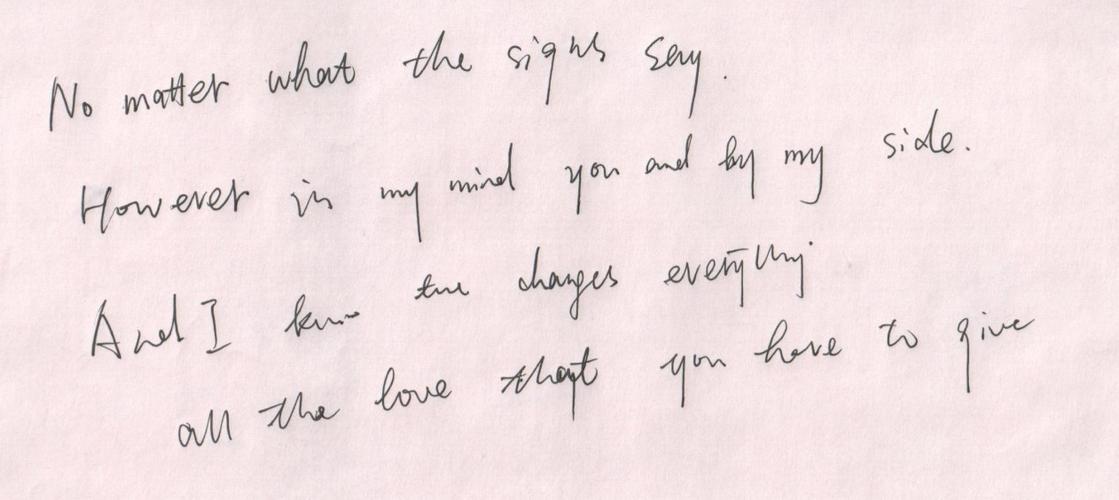 No matter what the signs say.
However in my mind you and by my side.
And I know time changes everything
all the love that you have to give